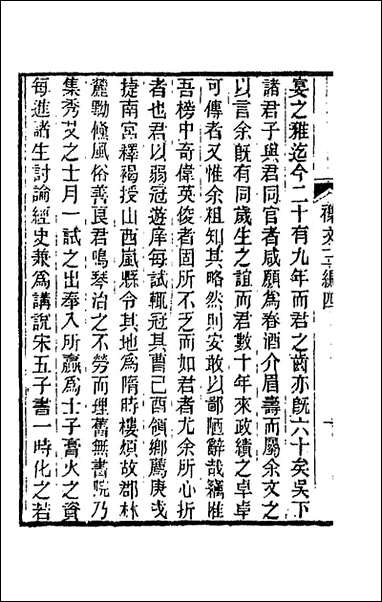 宴之雅迄今二十有九年而君之齒亦旣六十矣吳下
諸君子與君同官者咸願爲春酒介眉壽而屬余文之
以言余旣有同歲生之誼而君數十年來政績之卓卓
可傳者又惟余粗知其略然則安敢以鄙陋辭哉竊惟
吾榜中奇偉英俊者固所不乏而如君者尤余所心折
者也君以弱冠遊庠每試輒冠其曹己酉領鄉薦庚戌
捷南宮釋褐授山西嵐縣令其地爲隋時樓煩故郡林
麓勷翛風俗善良君鳴琴治之不勞而理舊無書院乃
集秀茂之士月一試之出奉入所贏爲士子膏火之資
每進諸生討論經史兼爲講說宋五子書一時化之若
襍文三編四